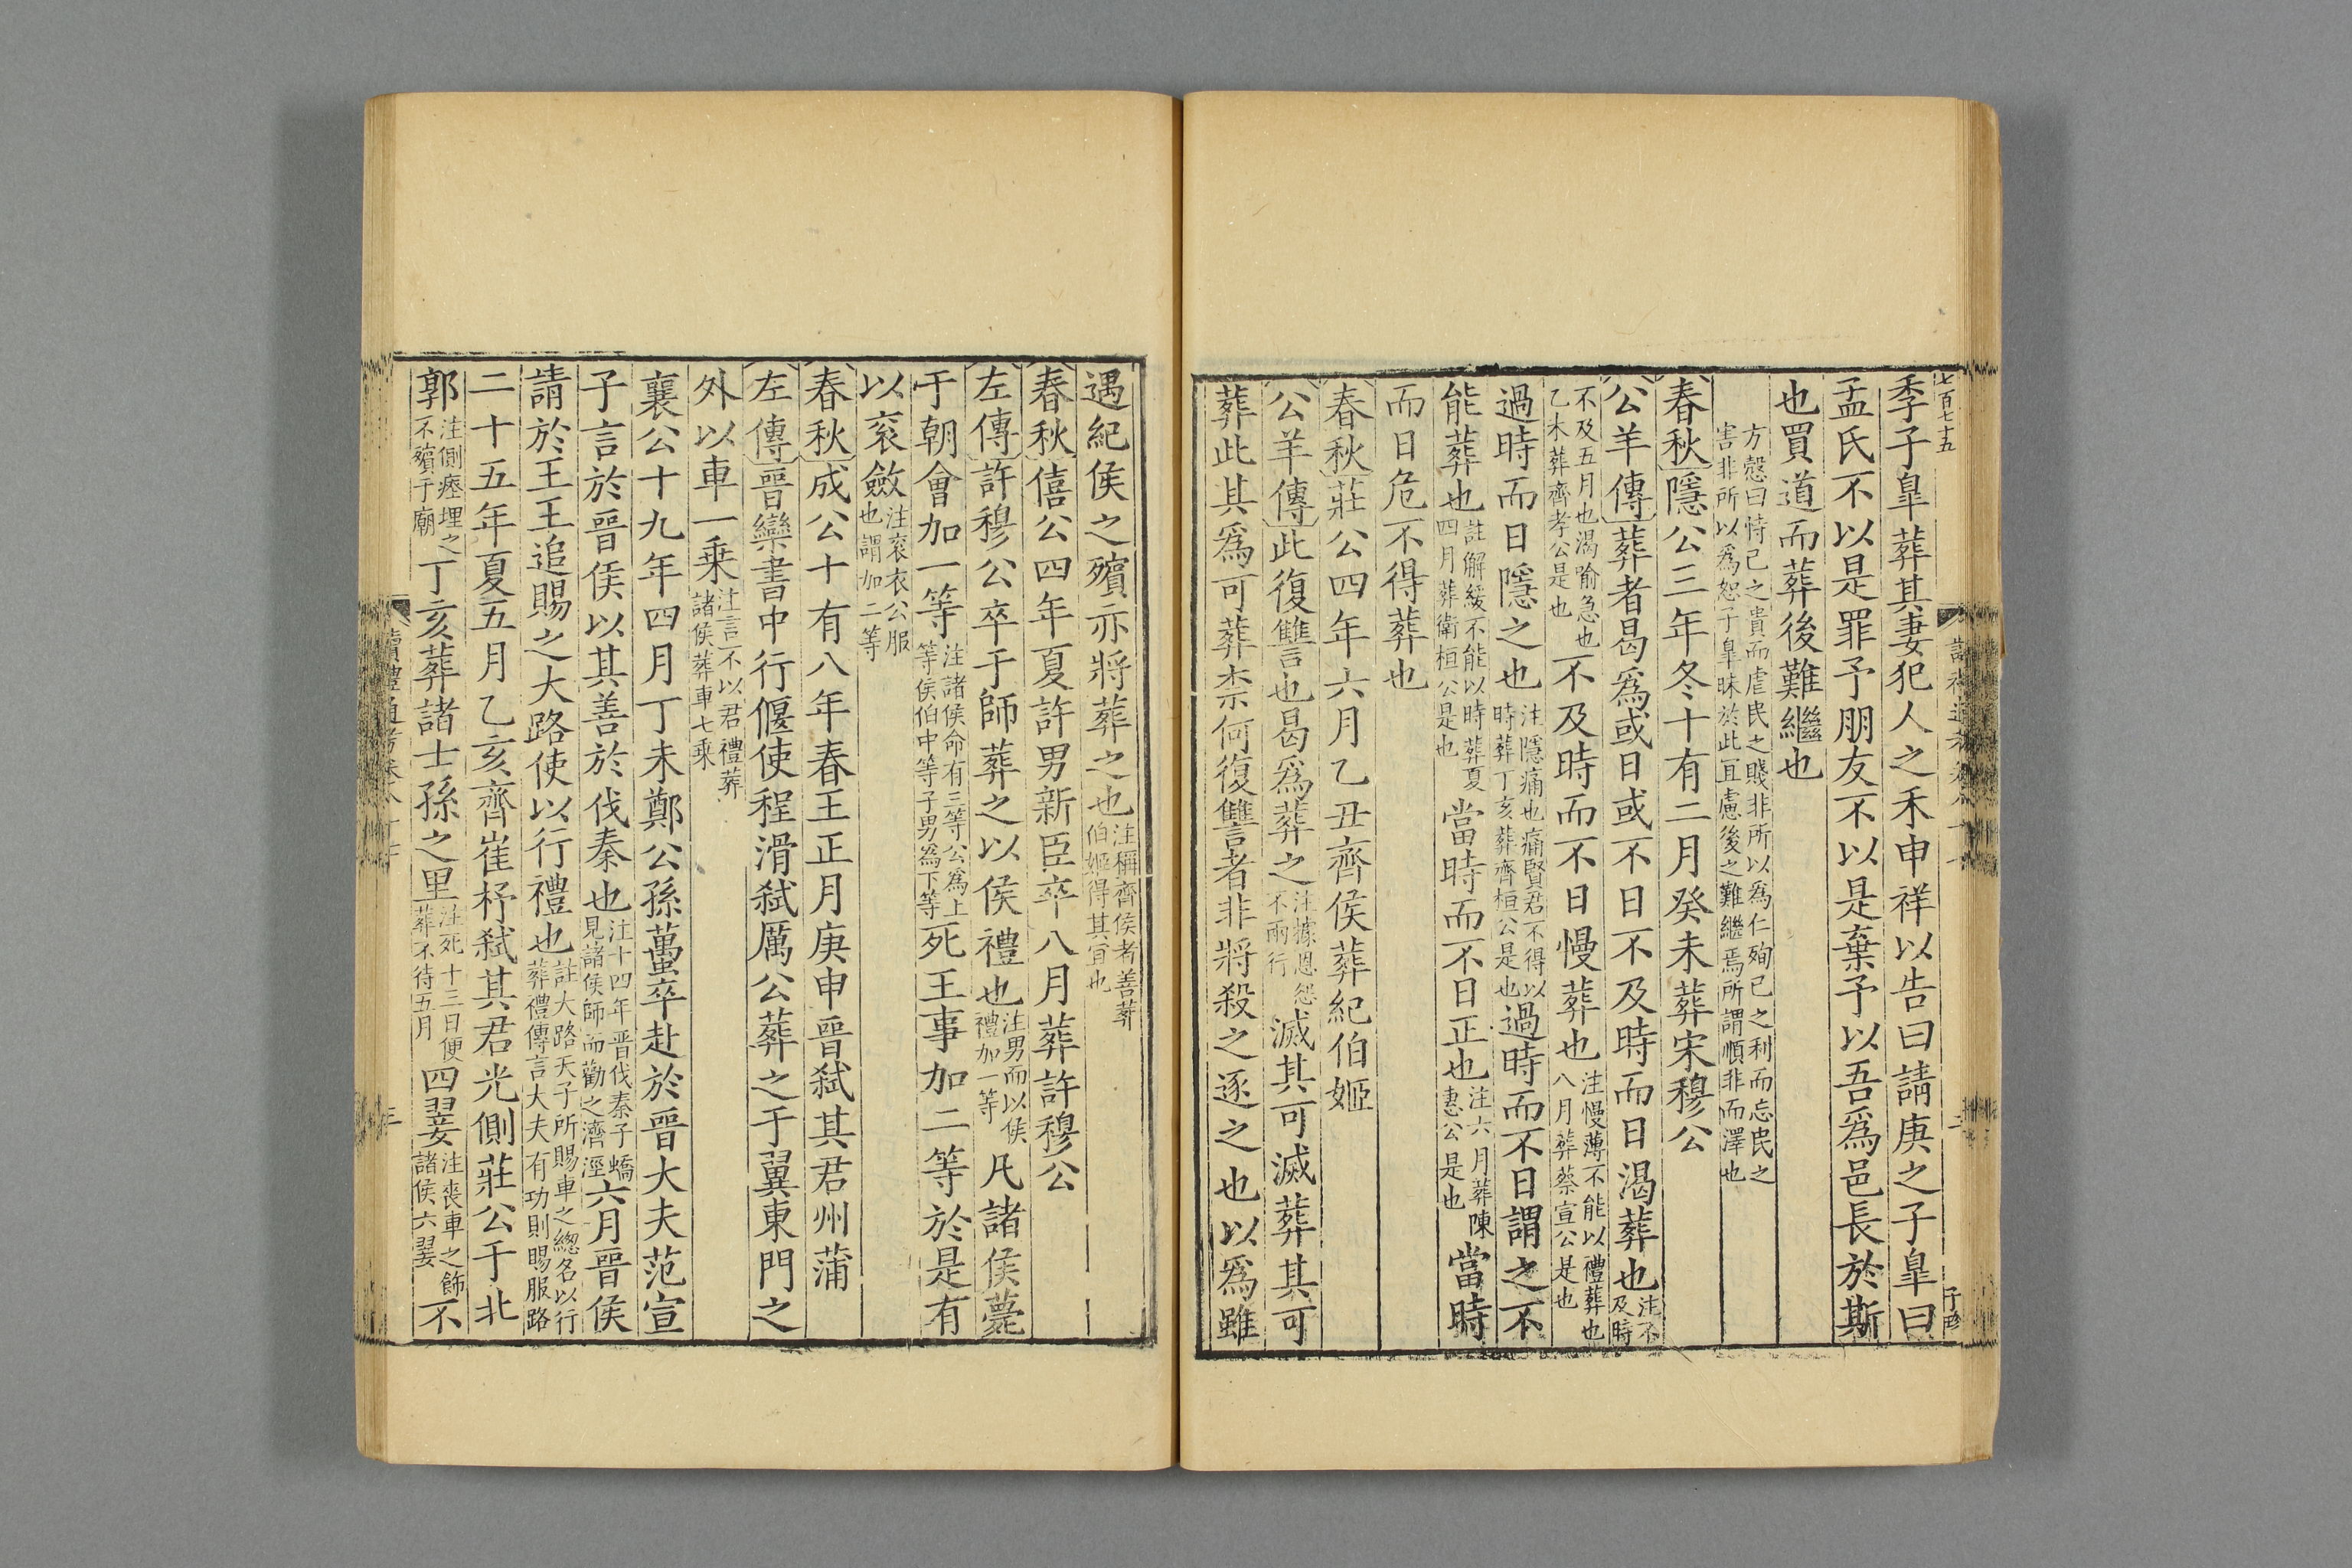 七百七十五
季子臯葬其妻犯人之禾申祥以告曰請庚之子臯曰
孟氏不以是罪予朋友不以是棄予以吾爲邑長於斯
也買道而葬後難繼也
方慤曰恃己之貴而虐民之賤非所以爲仁殉己之利而忘民之
害非所以爲恕子臯昧於此且慮後之難繼焉所謂順非而澤也
春秋隱公三年冬十有二月癸未葬宋穆公
公羊傳葬者曷爲或日或不日不及時而日渴葬也注不及時
不及五月也渴喻急也乙未葬齊孝公是也不及時而不日慢葬也注慢薄不能以禮葬也八月葬蔡宣公是也
過時而日隱之也注隱痛也痛賢君不得以時葬丁亥葬齊桓公是也過時而不日謂之不
能葬也註解緩不能以時葬夏四月葬衛桓公是也當時而不日正也注六月葬陳惠公是也當時
而日危不得葬也
春秋莊公四年六月乙丑齊侯葬紀伯姬
公羊傳此復讐也曷爲葬之注據恩怨不兩行滅其可滅葬其可
葬此其爲可葬柰何復讐者非將殺之逐之也以爲雖
遇紀侯之殯亦將葬之也注稱齊侯者善葬伯姬得其宜也
春秋僖公四年夏許男新臣卒八月葬許穆公
左傳許穆公卒于師葬之以侯禮也注男而以侯禮加一等凡諸侯薨
于朝會加一等注諸侯命有三等公爲上等侯伯中等子男爲下等死王事加二等於是有
以袞斂注袞衣公服也謂加二等
春秋成公十有八年春王正月庚申晉弑其君州蒲
左傳晉欒書中行偃使程滑弑厲公葬之于翼東門之
外以車一乗注言不以君禮葬諸侯葬車七乘
襄公十九年四月丁未鄭公孫蠆卒赴於晉大夫范宣
子言於晉侯以其善於伐秦也注十四年晉伐秦子蟜見諸侯師而勸之濟涇六月晉侯
請於王王追賜之大路使以行禮也註大路天子所賜車之總名以行葬禮傳言大夫有功則賜服路
二十五年夏五月乙亥齊崔杼弑其君光側莊公于北
郭注側瘞埋之不殯于廟丁亥葬諸士孫之里注死十三日便葬不待五月四翣注喪車之飾諸侯六翣不
三